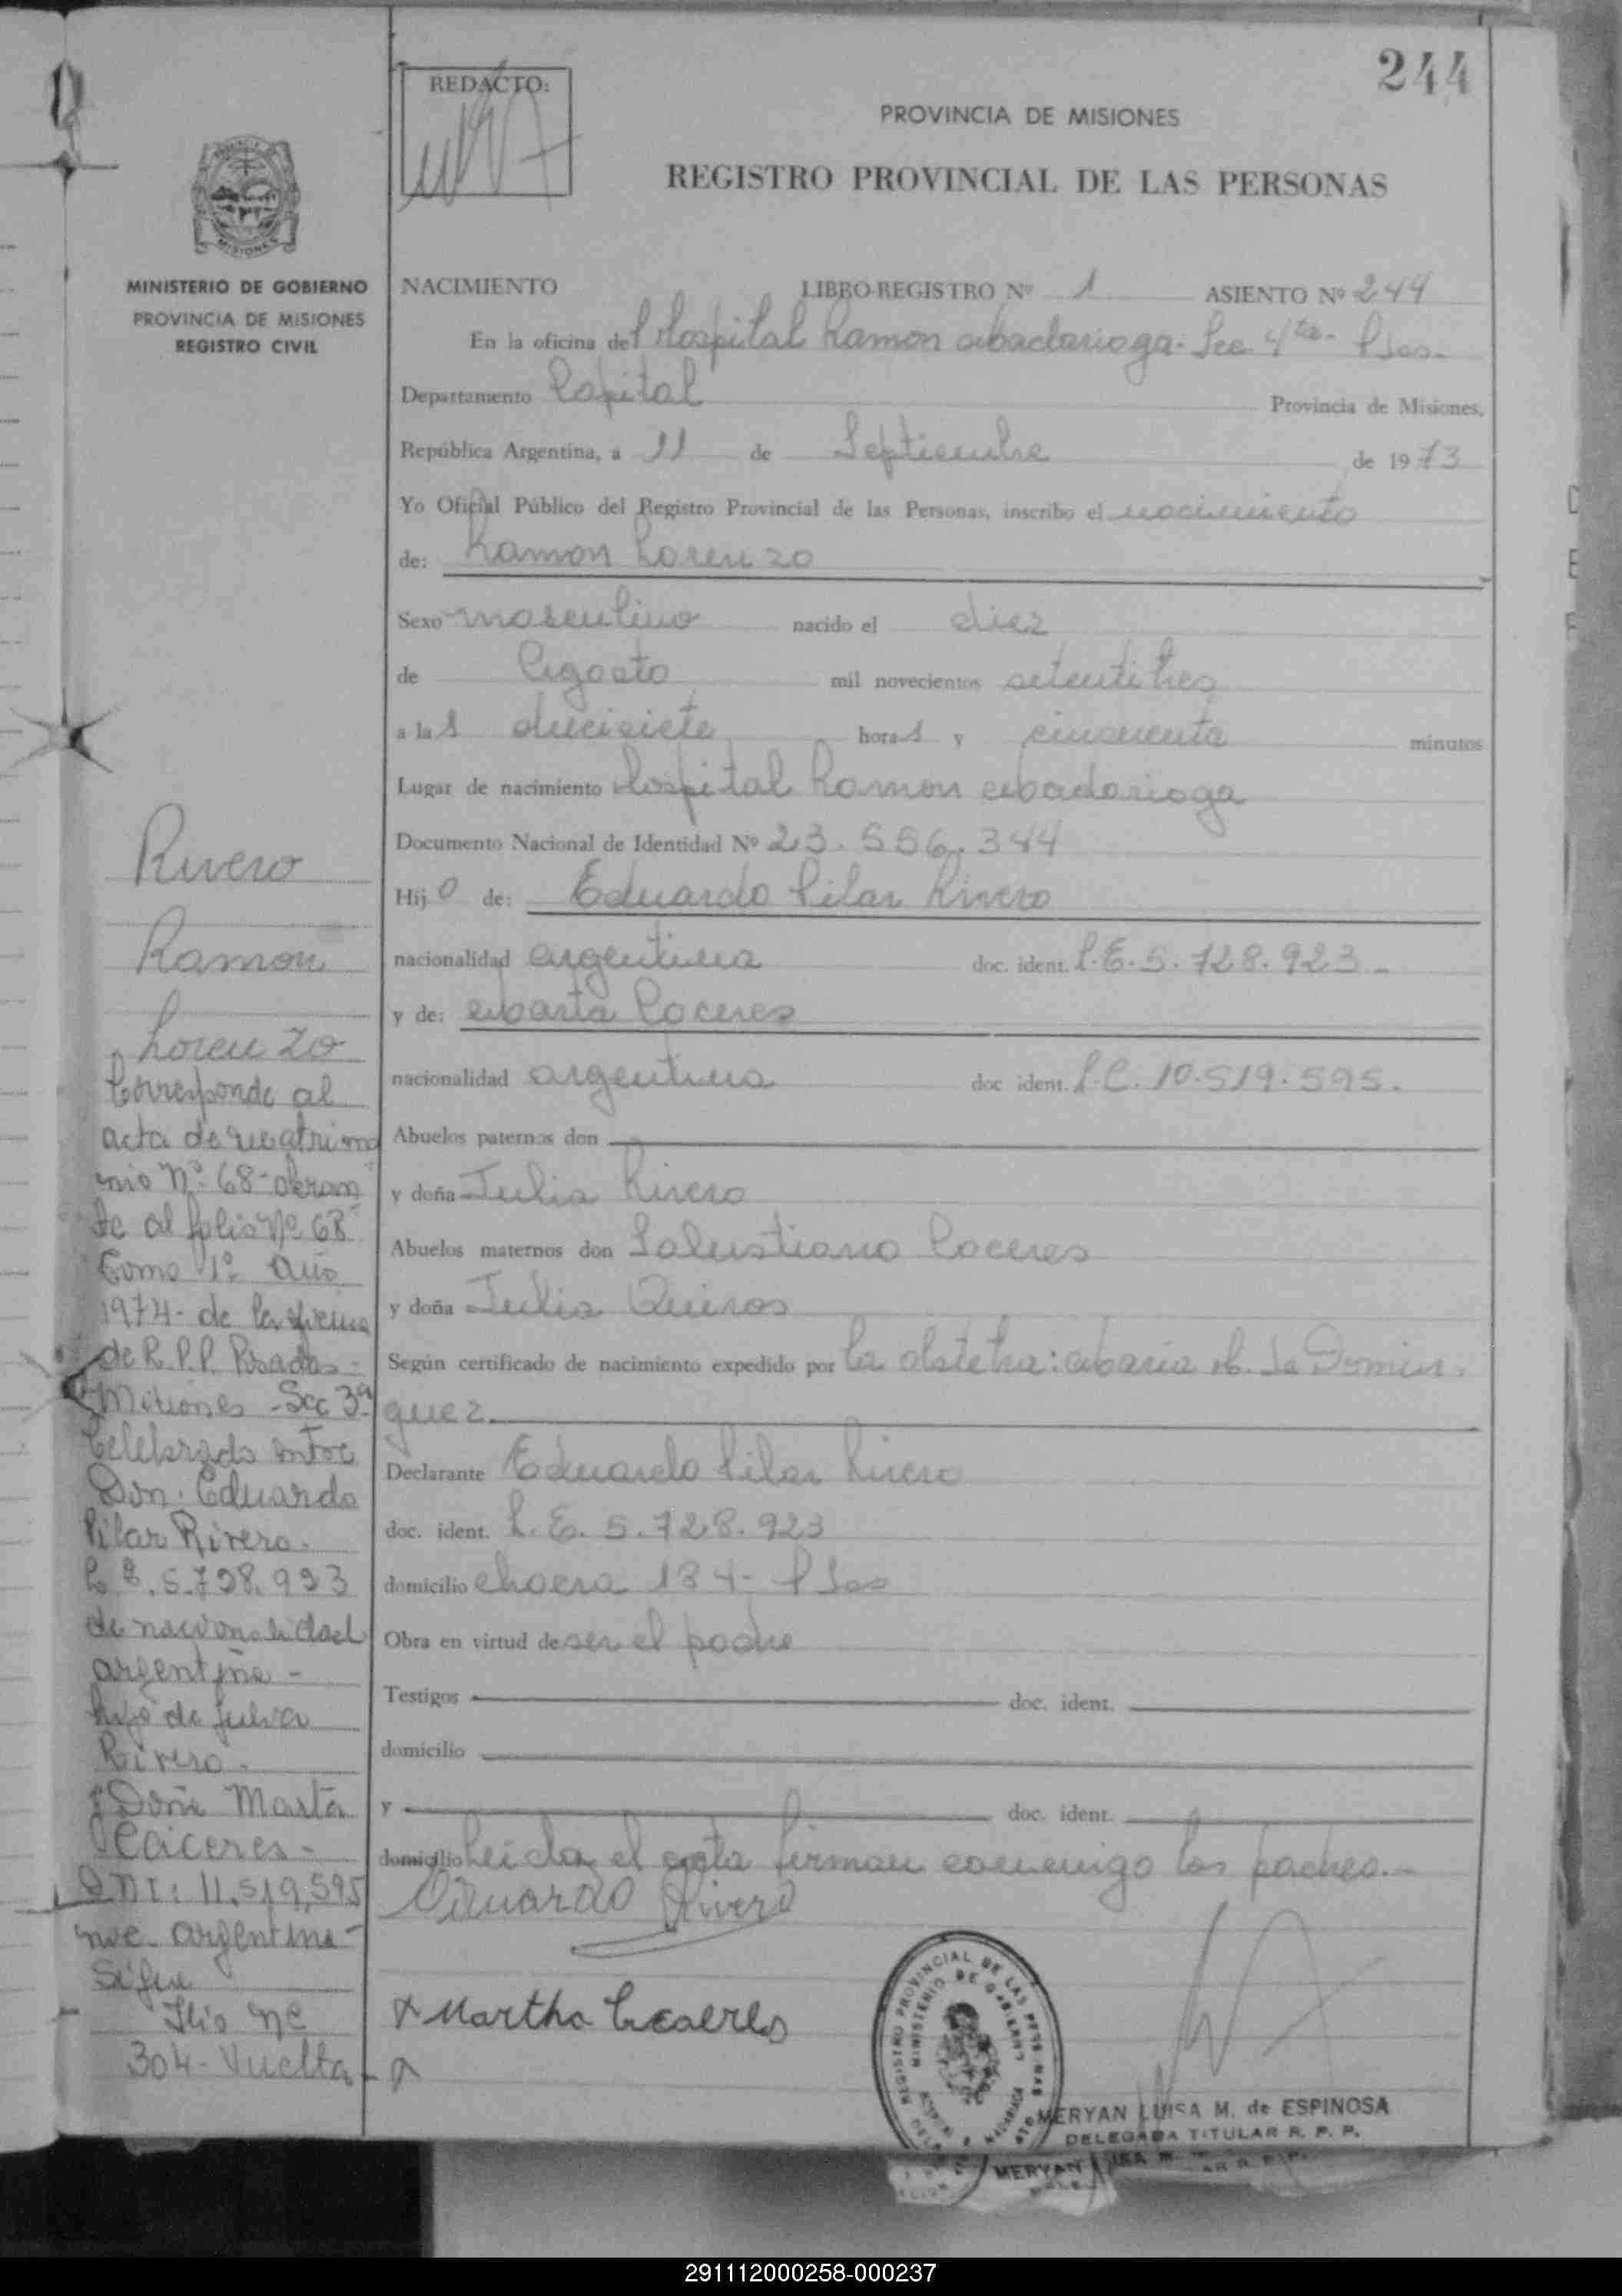 244
REDACTO:
PROVINCIA DE MISIONES
REGISTRO PROVINCIAL DE LAS PERSONAS
MISIONES
MINISTERIO DE GOBIERNO
PROVINCIA DE MISIONES
REGISTRO CIVIL
NACIMIENTO LIBRO-REGISTRO Nº 1 ASIENTO Nº 244
En la oficina del Hospital Ramon Madariaga - Sec 4ta - Psas.
Departamento Capital Provincia de Misiones,
República Argentina, a 11 de Septiembre de 1973
Yo Oficial Público del Registro Provincial de las Personas, inscribo el nacimiento
de: Ramon Lorenzo
Sexo masculino nacido el diez
de Agosto mil novecientos setentitres
a las diecisiete horas y cincuenta minutos
Lugar de nacimiento Hospital Ramon Madariaga
Documento Nacional de Identidad Nº 23.556.344
Hijo de: Eduardo Pilar Rivero
nacionalidad argentina doc. ident. L.E. 5.728.923-
y de: Marta Caceres
nacionalidad argentina doc ident. L.C. 10.519.595.
Abuelos paternos don
y doña Julia Rivero
Abuelos maternos don Salustiano Caceres
y doña Julia Quiros
Según certificado de nacimiento expedido por la obstetra: Maria M. de Domin-
guez.
Declarante Eduardo Pilar Rivero
doc. ident. L.E. 5.728.923
domicilio chacra 134- Psas
Obra en virtud de ser el padre
Testigos doc. ident.
domicilio
y doc. ident.
domicilio Leida el acta firman conmigo los padres.-
Eduardo Rivero
x Martha Caceres
Rivero
Ramon
Lorenzo
Corresponde al
acta de matrimo
nio Nº 68- obran
te al folio Nº 68
Tomo 1º año
1974- de la oficina
de R.P.P. Posadas-
Misiones - Sec 3ª
Celebrado entre
Don: Eduardo
Pilar Rivero.
L E. 5.728.923
de nacionalidad
argentina -
hijo de Julia
Rivero.
y Doña Marta
Caceres-
DNI: 11.519.595
nac- argentina-
Sigue
folio Nº
304- Vuelta-
REGISTRO PROVINCIAL DE LAS PERSONAS
MINISTERIO DE GOBIERNO
MERYAN LUISA M. de ESPINOSA
DELEGADA TITULAR R. P. P.
MERYAN
291112000258-000237